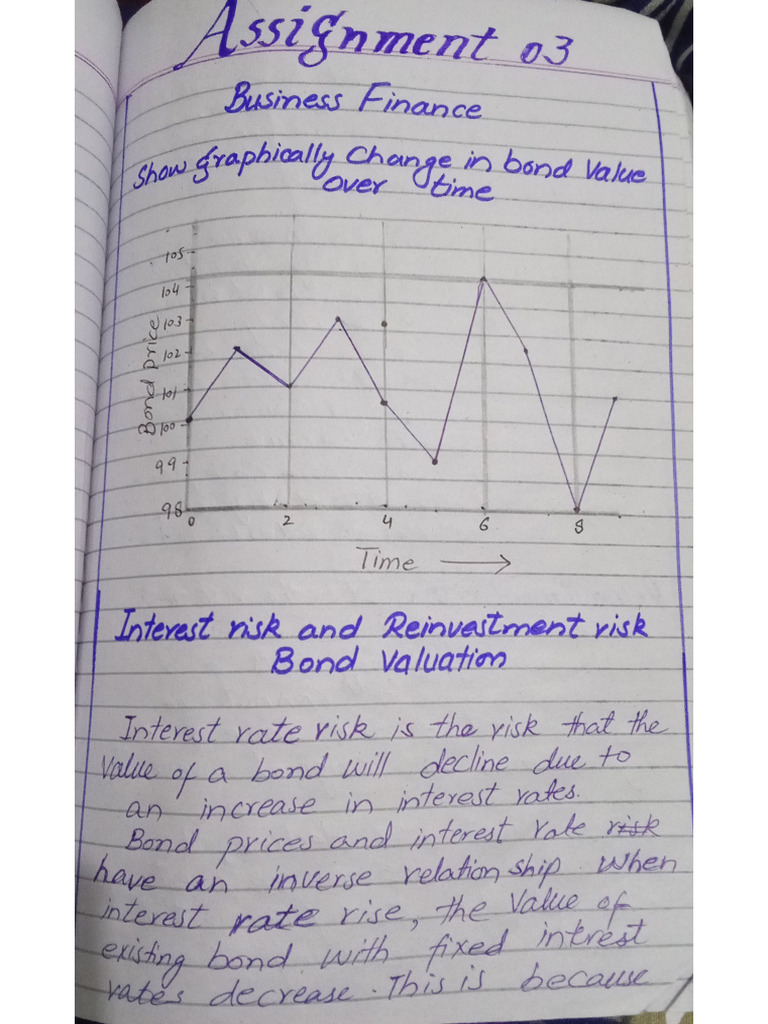 Assignment 03
Business Finance
Show graphically Change in bond Value
over time
105
104
103
102
101
100
99
98
Bond price
0 2 4 6 8
Time
Interest risk and Reinvestment risk
Bond Valuation
Interest rate risk is the risk that the
Value of a bond will decline due to
an increase in interest rates.
Bond prices and interest rate risk
have an inverse relationship when
interest rate rise, the Value of
existing bond with fixed intrest
rates decrease. This is because